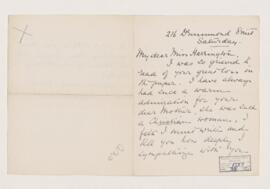 216 Drummond Street
Saturday.
My dear Miss Harrington
I was so grieved to
read of your great loss in
the paper. I have always
had such a warm
admiration for your
dear Mother, she was such
a Christian woman. I
felt I must write and
tell you how deeply I
sympathize with you